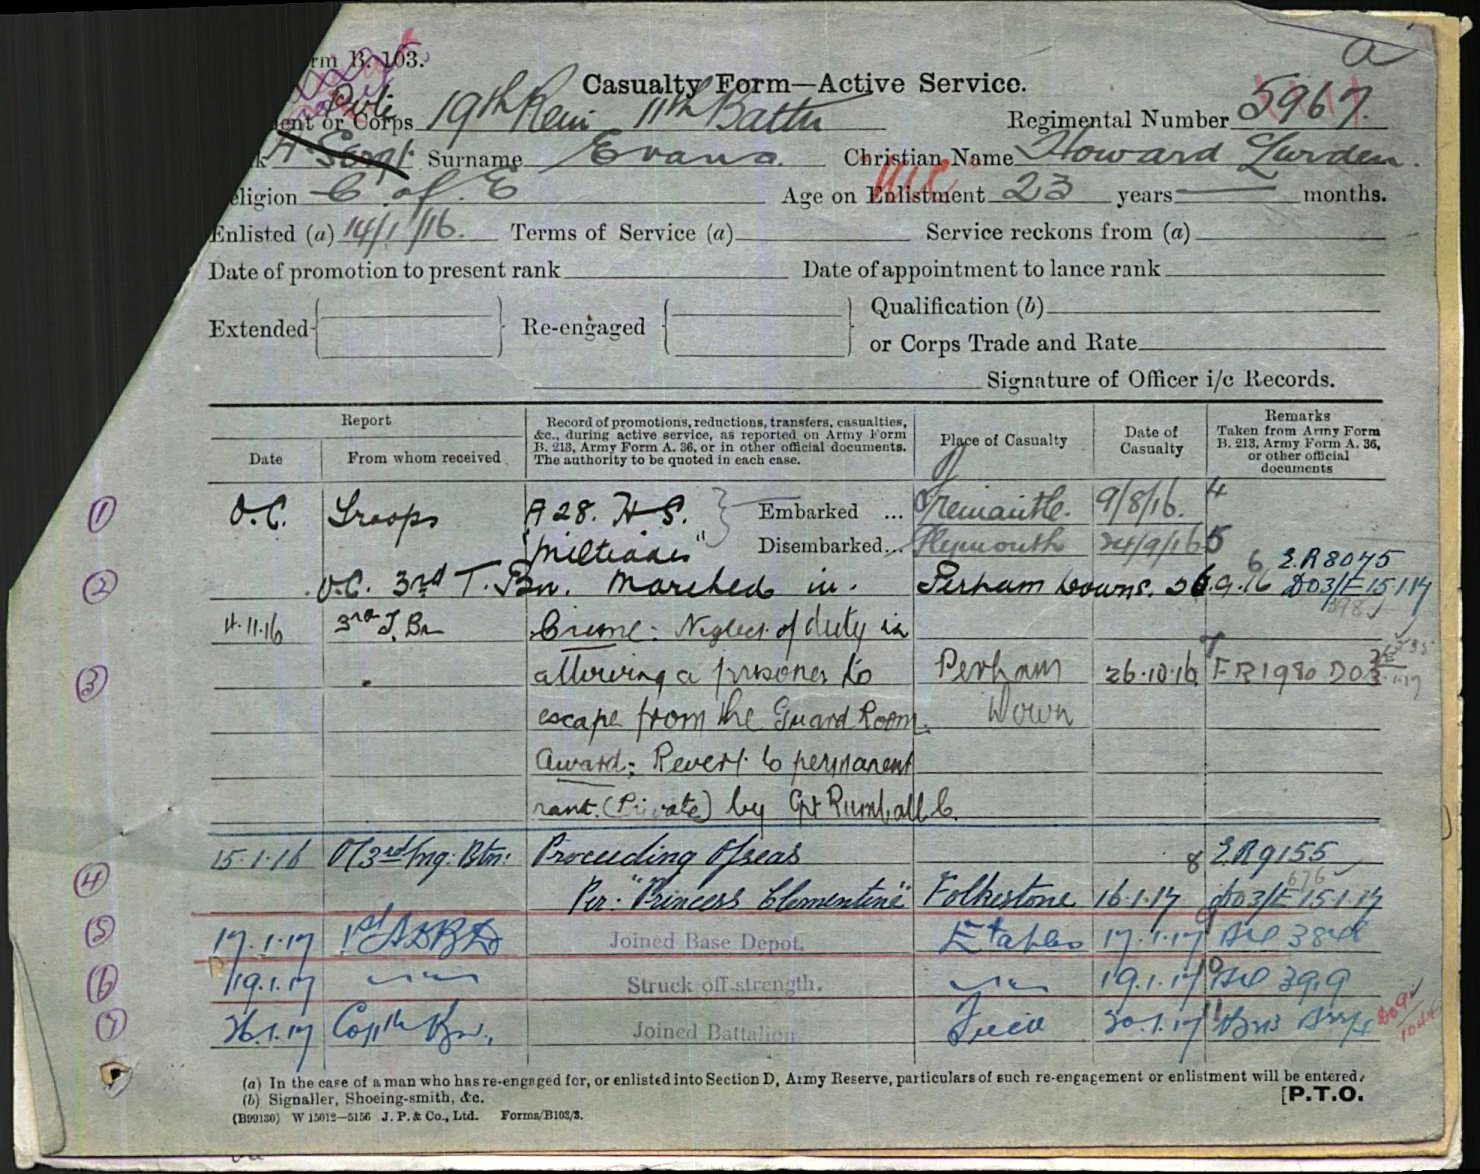 a
rm B. 103.
Casualty Form—Active Service.
ent or Corps 19th Rein 11th Battn Regimental Number 5967.
k A. Sergt. Surname Evans. Christian Name Howard Lurden.
eligion C of E Age on Enlistment 23 years — months.
Enlisted (a) 14/1/16. Terms of Service (a) Service reckons from (a)
Date of promotion to present rank Date of appointment to lance rank
Extended Re-engaged Qualification (b)
or Corps Trade and Rate
Signature of Officer i/c Records.
Report
Date
From whom received
Record of promotions, reductions, transfers, casualties,
&c., during active service, as reported on Army Form
B. 213, Army Form A. 36, or in other official documents.
The authority to be quoted in each case.
Place of Casualty
Date of
Casualty
Remarks
Taken from Army Form
B. 213, Army Form A. 36,
or other official
documents
1 O.C. Troops A 28. H.S. Embarked ... Fremantle. 9/8/16. 4
"Miltiades" Disembarked... Plymouth 24/9/16 5
2 O.C. 3rd T. Bn. Marched in. Perham Downs. 26.9.16 6 E.R 8045
D03/E 15.1.17
4.11.16 3rd T. Bn Crime: Neglect of duty in
3 allowing a prisoner to Perham 26.10.16 7 ER1980 D03
escape from the Guard Room. Down
Award: Revert to permanent
rank (Private) by Cpt Rumball C.
15.1.16 O/ 3rd Trng. Btn: Proceeding O/seas 8 E.R 9155
4 Per. "Princess Clementine" Folkestone 16.1.17 D03/E 15.1.17
5 17.1.17 1st ADBD Joined Base Depot. Etaples 17.1.17 9 384
6 19.1.17 Struck off strength. 19.1.17 10 3919
7 26.1.17 Joined Battalion Field 20.1.17 11
(a) In the case of a man who has re-engaged for, or enlisted into Section D, Army Reserve, particulars of such re-engagement or enlistment will be entered.
(b) Signaller, Shoeing-smith, &c.
[P.T.O.
(B99130) W 15012—5156 J. P. & Co., Ltd. Forms/B103/3.